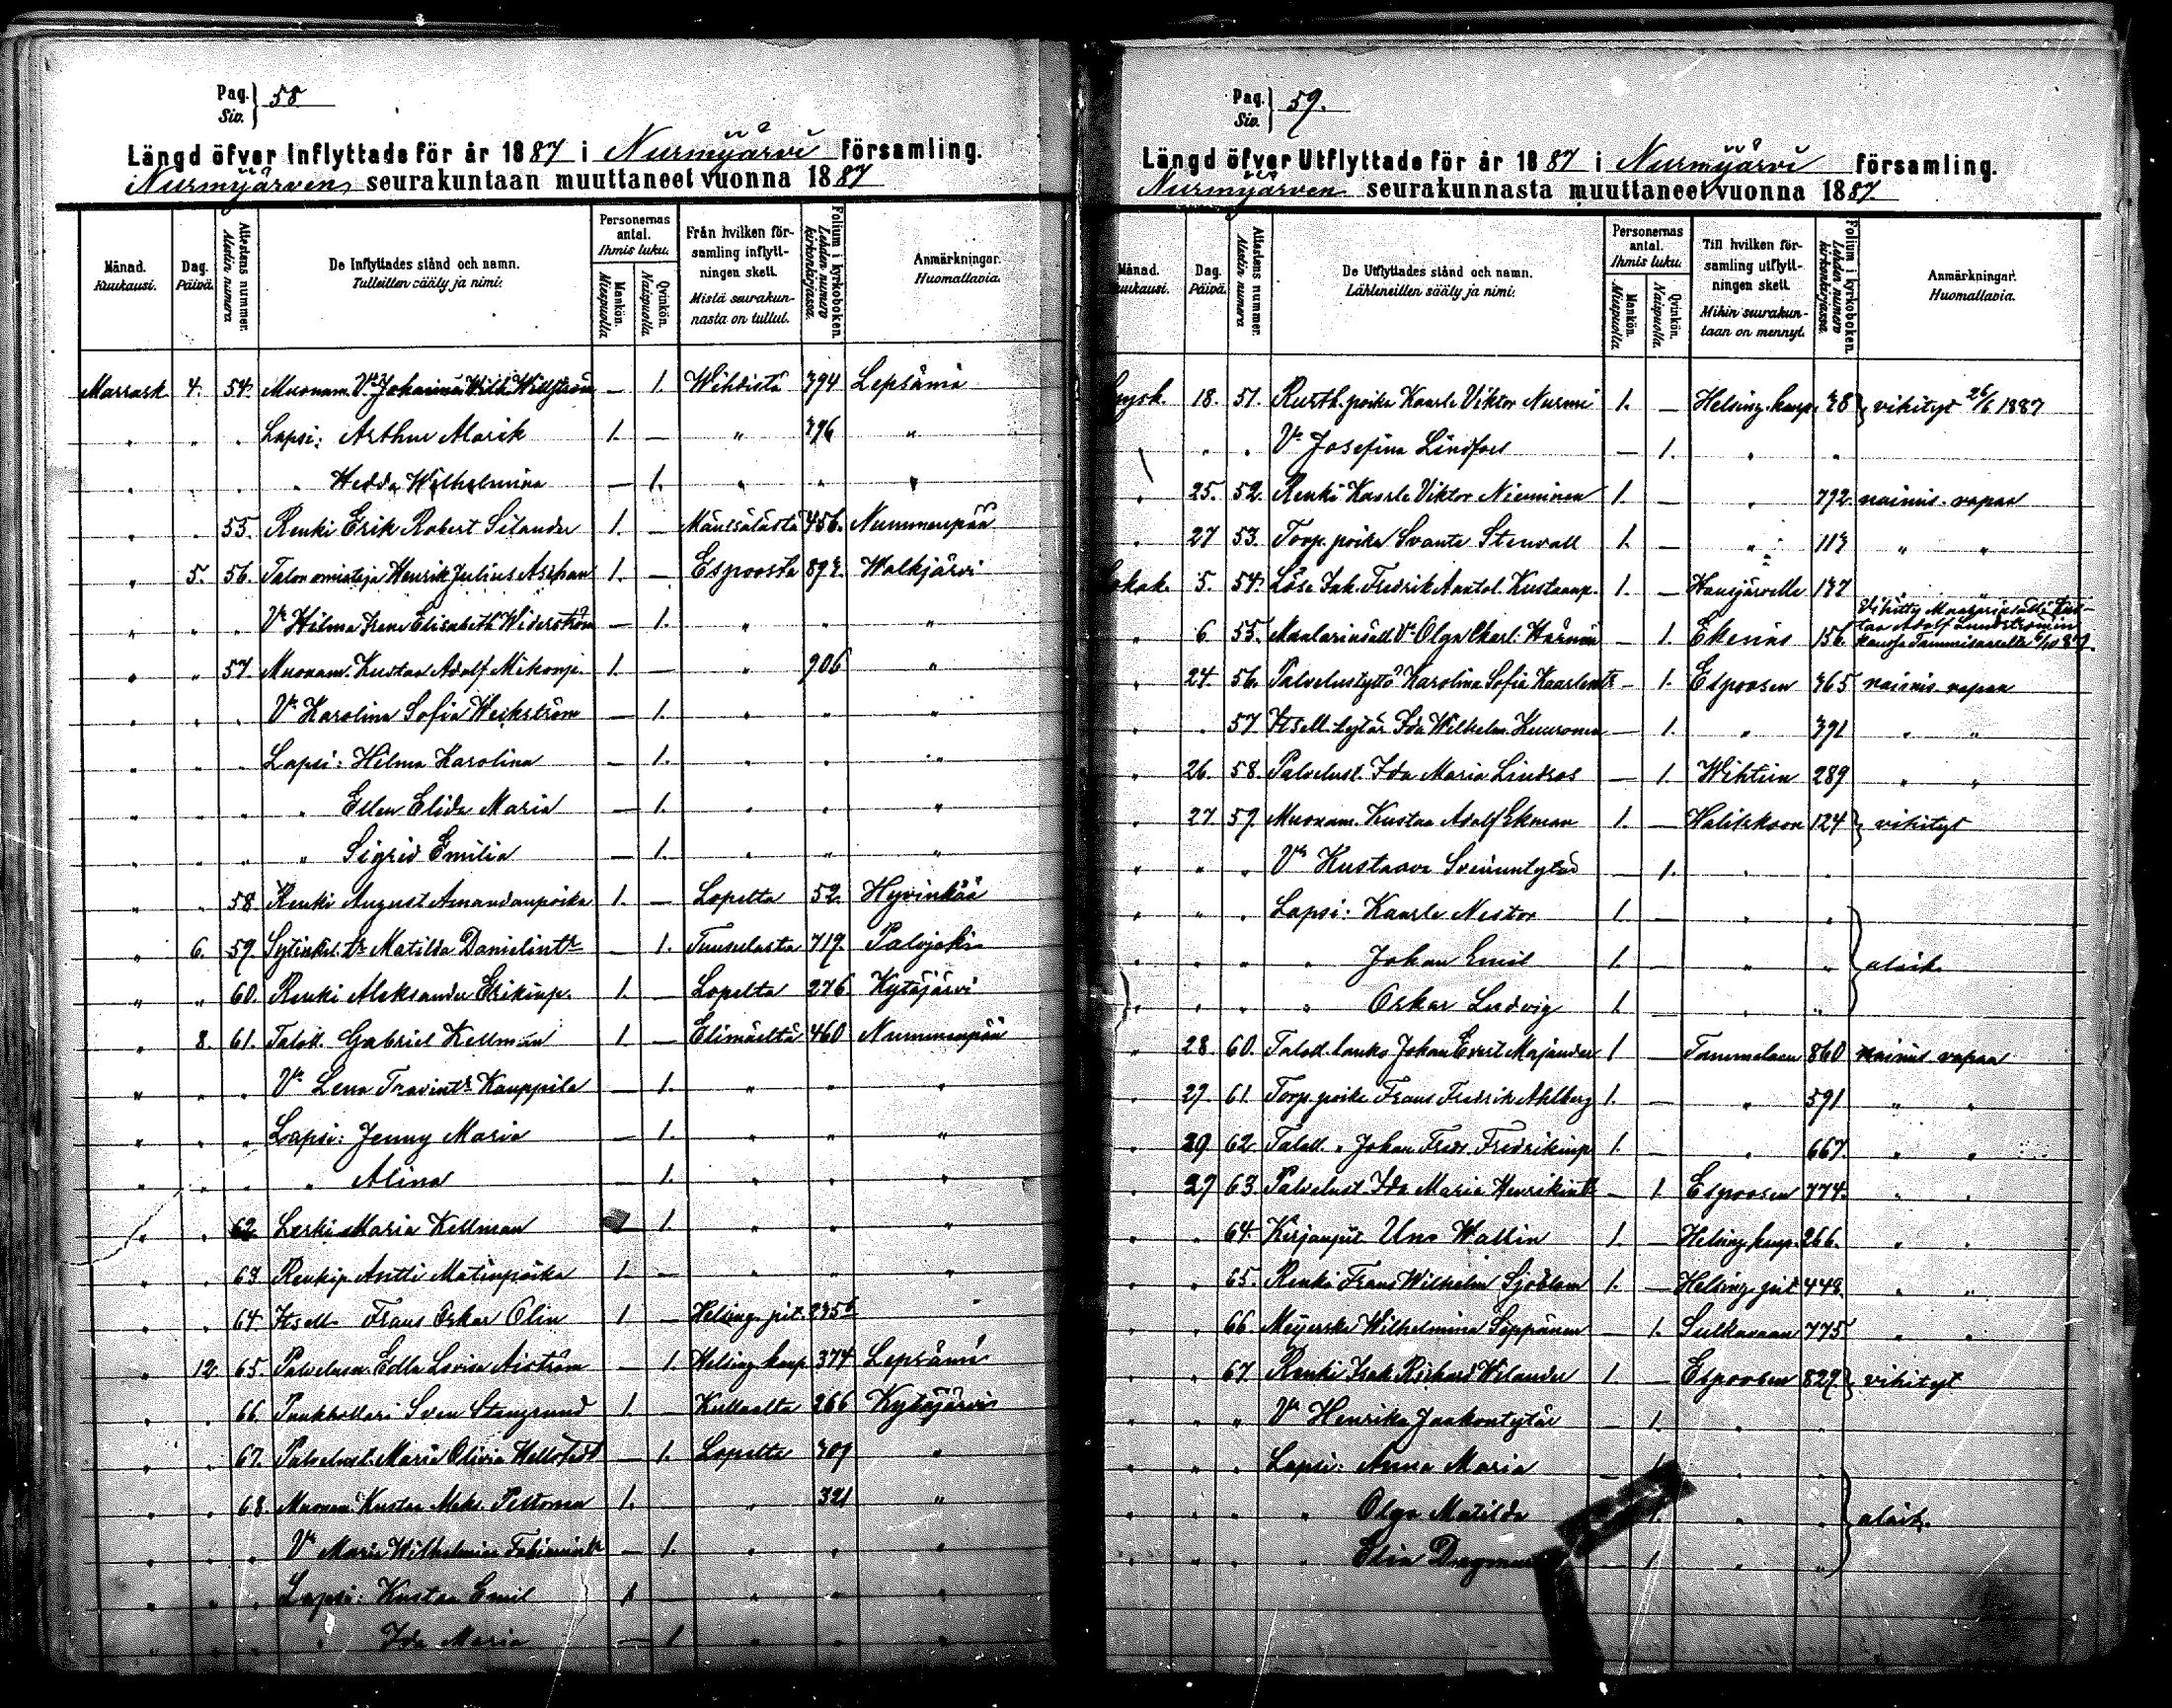 Pag. Siv. } 58
Längd öfver Inflyttade för år 1887 i Nurmijärvi församling.
Nurmijärven seurakuntaan muuttaneet vuonna 1887
Månad. Kuukausi.
Dag. Päivä.
Attestens nummer. Alestin numero
De Inflyttades stånd och namn. Tulleitten sääty ja nimi.
Personernas antal. Ihmis luku.
Mankön. Miespuolia.
Qvinkön. Naispuolia.
Från hvilken församling inflyttningen skett. Mistä seurakunnasta on tullut.
Folium i kyrkoboken. Lehden numero kirkonkirjassa.
Anmärkningar. Huomattavia.
Marrask. 4. 54. Muonam. Vo Johanna Wilh. Willström — 1. Wihdistä 794 Lepsämä
" " " Lapsi: Arthur Alarik 1. — " 796 "
" " " " Hedda Wilhelmina — 1. " " "
" " 55. Renki Erik Robert Silander 1. — Mäntsälästä 456. Nummenpää
" 5. 56. Talon omistaja Henrik Julius 1. — Espoosta Walkjärvi
" " " Vo Hilma Irene Elisabeth Widerström — 1. " " "
" " 57. Muonam. Kustaa Adolf Mikonp. 1. — " 906 "
" " " Vo Karolina Sofia Weckström — 1. " " "
" " " Lapsi: Hilma Karolina — 1. " " "
" " " " Ellen Elida Maria — 1. " " "
" " " " Sigrid Emilia — 1. " " "
" " 58. Renki August Amandanpoika 1. — Lopelta 52. Hyvinkää
" 6. 59. Matilda Danielintr — 1. Tuusulasta 719. Palojoki
" " 60. Renki Aleksander Erikinp. 1. — Lopelta 276 Kytäjärvi
" 8. 61. Taloll. Gabriel Kellman 1 — Elimäeltä 460 Nummenpää
" " " Vo Lena Kauppila — 1. " " "
" " " Lapsi: Jenny Maria — 1. " " "
" " " " Alina — 1. " " "
" " 62. Leski Maria Kellman 1 " " "
" " 63 Renkip. Antti Matinpoika 1. — " " "
" " 64. Itsell. Frans Oskar Olin 1 — Helsing. pit. "
" 12. 65. Palvelusn. Edla Lovisa — 1. Helsing. kaup. 374 Lepsämä
" " 66. Sven Stengrund 1. — 266 Kytäjärvi
" " 67. Palvelust. Maria Olivia — 1. Lopelta 309 "
" " 68. Muonam. Kustaa Aleks. Peltonen 1. " 321 "
Vo Maria Wilhelmina — 1. " " "
" " " Lapsi: Kustaa Emil 1 — " " "
" " " Ida Maria — 1 " " "
Pag. Siv. } 59.
Längd öfver Utflyttade för år 1887 i Nurmijärvi församling.
Nurmijärven seurakunnasta muuttaneet vuonna 1887.
Månad. Kuukausi.
Dag. Päivä.
Attestens nummer. Alestin numero
De Utflyttades stånd och namn. Lähteneitten sääty ja nimi.
Personernas antal. Ihmis luku.
Mankön. Miespuolia.
Qvinkön. Naispuolia.
Till hvilken församling utflyttningen skett. Mihin seurakuntaan on mennyt.
Folium i kyrkoboken. Lehden numero kirkonkirjassa.
Anmärkningar. Huomattavia.
Syysk. 18. 51. Rusth. poika Kaarle Viktor Nurmi 1. — Helsing. kaup. 38 } vihityt 26/6 1887
" " Vo Josefina Lindfors — 1. " "
" 25. 52. Renki Kaarle Viktor Nieminen 1. — " 792. naimis. vapaa
" 27 53. Torp. poika Svante Stenvall 1. — " 113 " "
Lokak. 5. 54. Fredrik Kustaanp. 1. — Hausjärvelle " "
" 6. 55. Maalarinsäll. Vo Olga Charl. — 1. Ekenäs 156. Vihitty Maalarinsälli Kustaa Adolf Lundströmin kanssa Tammisaarella 6/10 87.
" 24. 56. Palvelustyttö Karolina Sofia Kaarlentr — 1. Espoosen 365 naimis. vapaa
" " 57 Itsell. tytär Ida Wilhelm. — 1. " 391 " "
" 26. 58. Palvelust. Ida Maria Lindroos — 1. Wihtiin 289 " "
" 27 59. Muonam. Kustaa Adolf Ekman 1. — Halikkoon 124 } vihityt
" " " Vo Kustaava — 1. " "
" " " Lapsi: Kaarle Nestor 1. — " "
" " " " Johan Emil 1. — " " } alaik.
" " " " Oskar Ludvig 1. — " "
" 28. 60. Taloll. lanko Johan Evert Majander 1 — Tammelaan 860 naimis. vapaa
" 29. 61. Torp. poika Frans Fredrik Ahlberg 1. — " 591 " "
" 29 62. Taloll. " Johan Fredr. Fredrikinp. 1. — " 667. " "
" 29 63. Palvelust. Ida Maria Henrikintr — 1 Espoosen 774. " "
" " 64. Uno Wallin 1. — Helsing. kaup. 266. " "
" " 65. Renki Frans Wilhelm Sjöblom 1. — Helsing. pit. 448. " "
" " 66. Meijerska Wilhelmina Seppänen — 1. Sulkavaan 775 " "
" " 67 Renki Isak Richard Wilander 1. — Espoosen 829 } vihityt
" " " Vo Henrika Jaakontytär — 1. " "
" " " Lapsi: Anna Maria — " "
" " " " Olga Matilda 1. " " } alaik.
" " " " Elin Dagmar — 1. " "